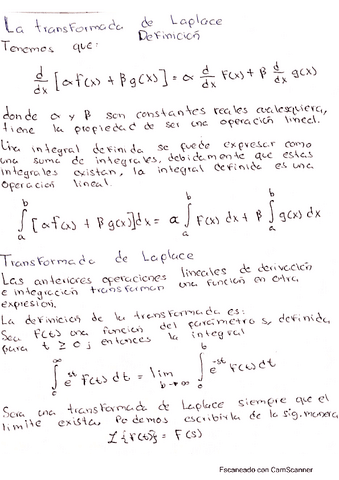 La transformada de Laplace
Definición
Tenemos que:
d/dx [αf(x) + βg(x)] = α d/dx f(x) + β d/dx g(x)
donde α y β son constantes reales cualesquiera,
tiene la propiedad de ser una operación lineal.
Una integral definida se puede expresar como
una suma de integrales, debidamente que estas
integrales existan, la integral definida es una
operación lineal.
∫_a^b [αf(x) + βg(x)]dx = α ∫_a^b f(x) dx + β ∫_a^b g(x) dx
Transformada de Laplace
Las anteriores operaciones lineales de derivación
e integración transforman una función en otra
expresión.
La definición de la transformada es:
Sea f(t) una función del parámetro s, definida
para t ≥ 0; entonces la integral
∫_0^∞ e^-st f(t) dt = lim b→∞ ∫_0^b e^-st f(t) dt
Sera una transformada de Laplace siempre que el
limite exista, Podemos escribirla de la sig. manera
ℒ{f(t)} = F(s)
Escaneado con CamScanner